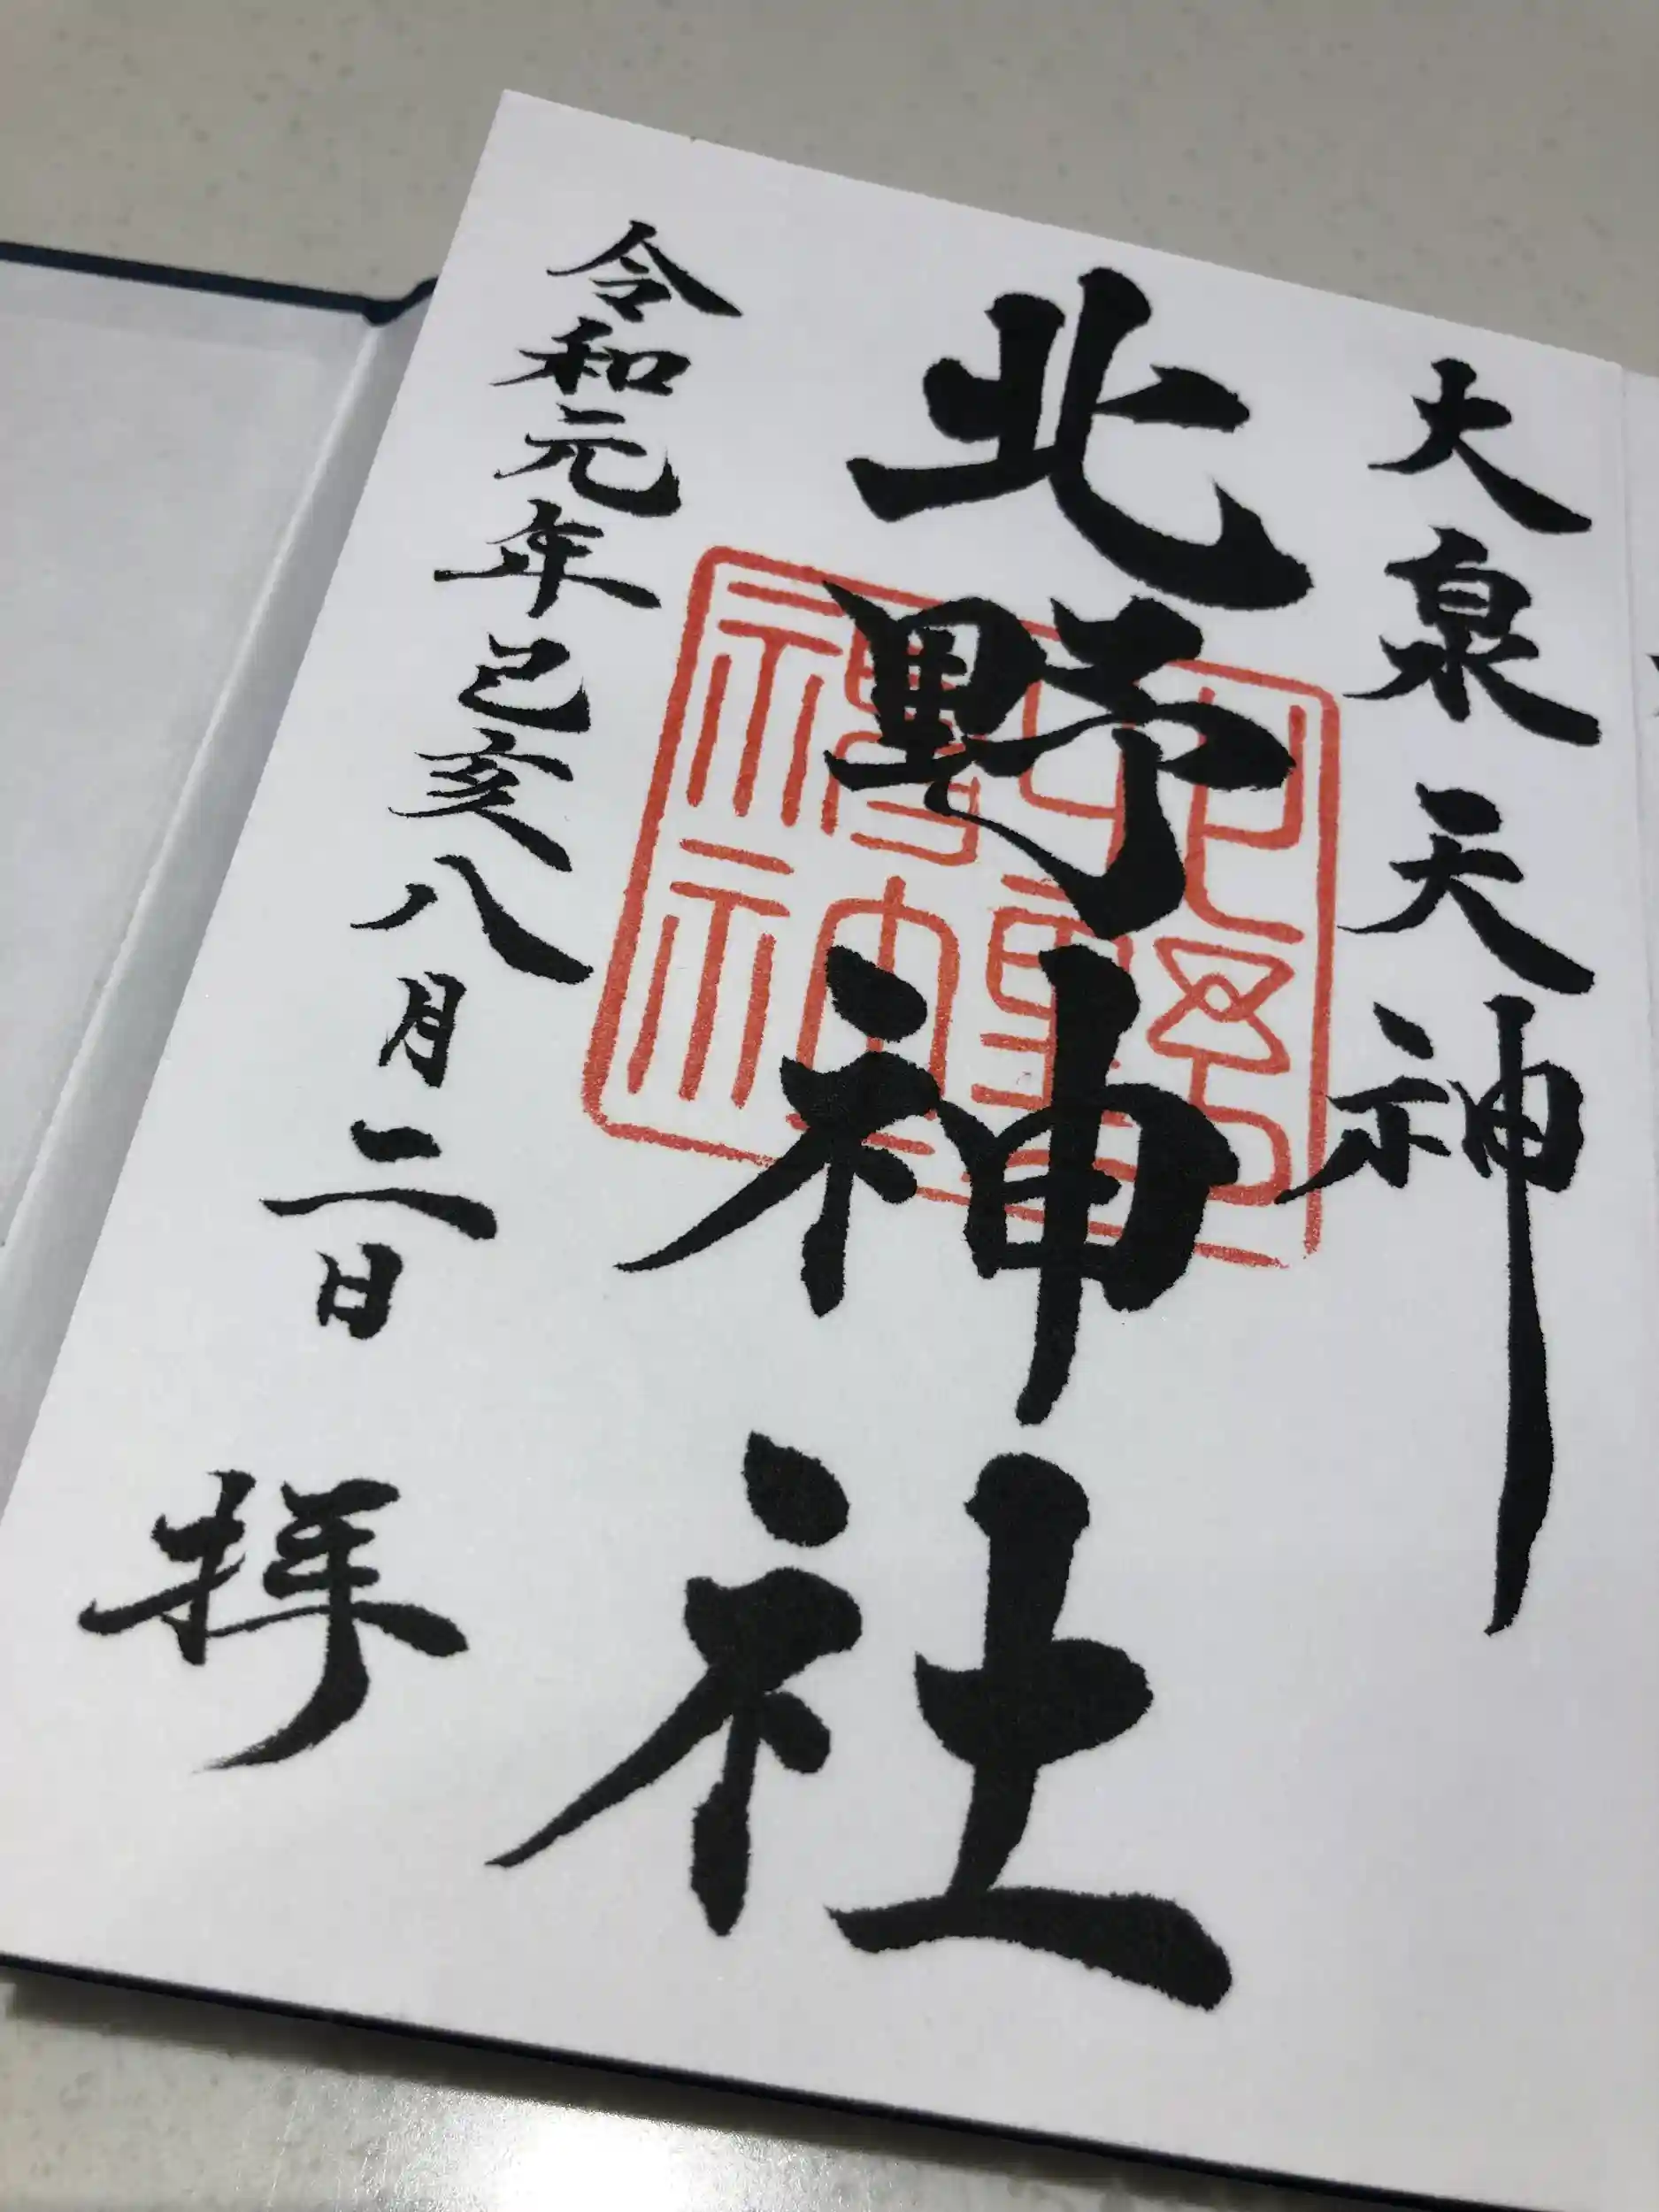 大泉天神
北野神社
令和元年己亥八月二日 拝
北野神社